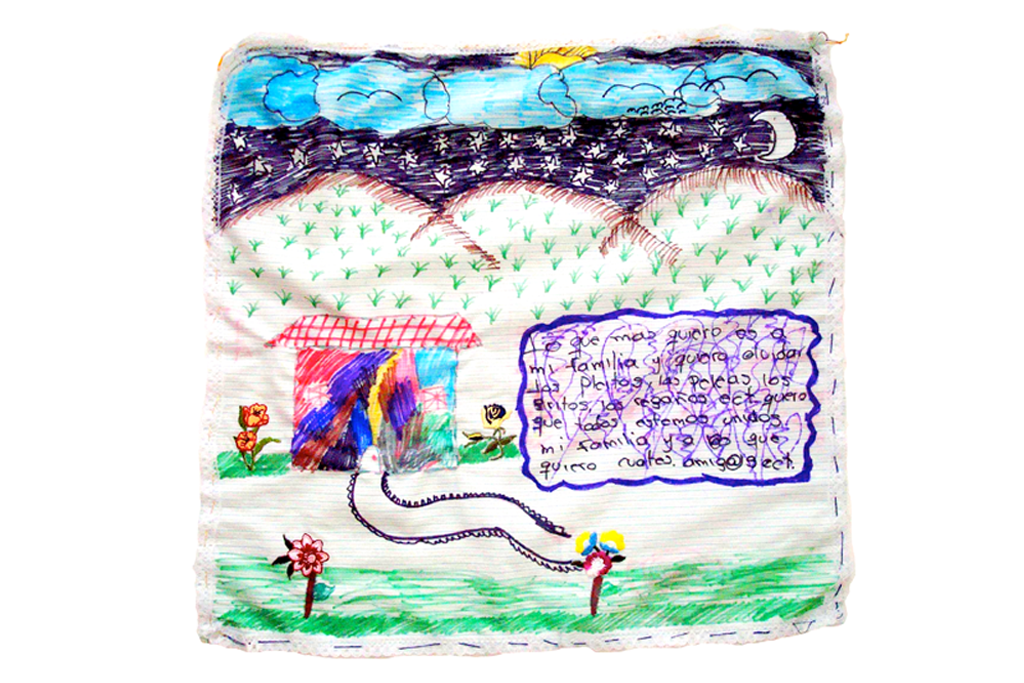 Lo que mas quiero es a
mi familia y quiero olvidar
las pleitos, las peleas los
gritos, los regaños ect. quero
que todos estemos unidos
mi familia y a los que
quiero cuates. amig@s ect.